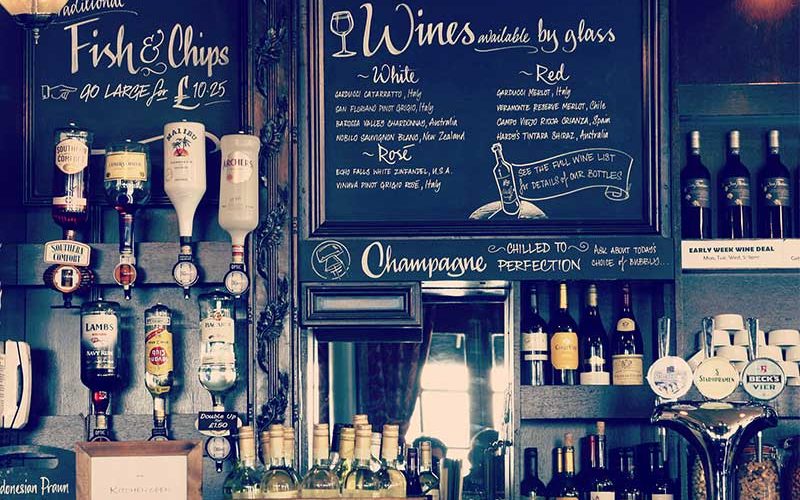 Traditional
Fish & Chips
GO LARGE for £10.25
Wines available by glass
~White
GARDUCCI CATARRATTO, Italy
SAN FLORIANO PINOT GRIGIO, Italy
BAROSSA VALLEY CHARDONNAY, Australia
NOBILO SAUVIGNON BLANC, New Zealand
~Rosé
ECHO FALLS WHITE ZINFANDEL, U.S.A.
VINUVA PINOT GRIGIO ROSÉ, Italy
~Red
GARDUCCI MERLOT, Italy
VERAMONTE RESERVE MERLOT, Chile
CAMPO VIEJO RIOJA CRIANZA, Spain
HARDY'S TINTARA SHIRAZ, Australia
SEE THE FULL WINE LIST
for DETAILS of OUR BOTTLES
Champagne
~CHILLED TO~
PERFECTION
ASK ABOUT TODAY'S
CHOICE OF BUBBLY...
EARLY WEEK WINE DEAL
SOUTHERN
COMFORT
SOUTHERN
COMFORT
MALIBU
ARCHERS
OPTIC
OPTIC
LAMB'S
NAVY RUM
BACARDI
Double Up
£1.50
STAROPRAMEN
BECK'S
VIER
Indonesian Prawn
KITCHEN OPEN